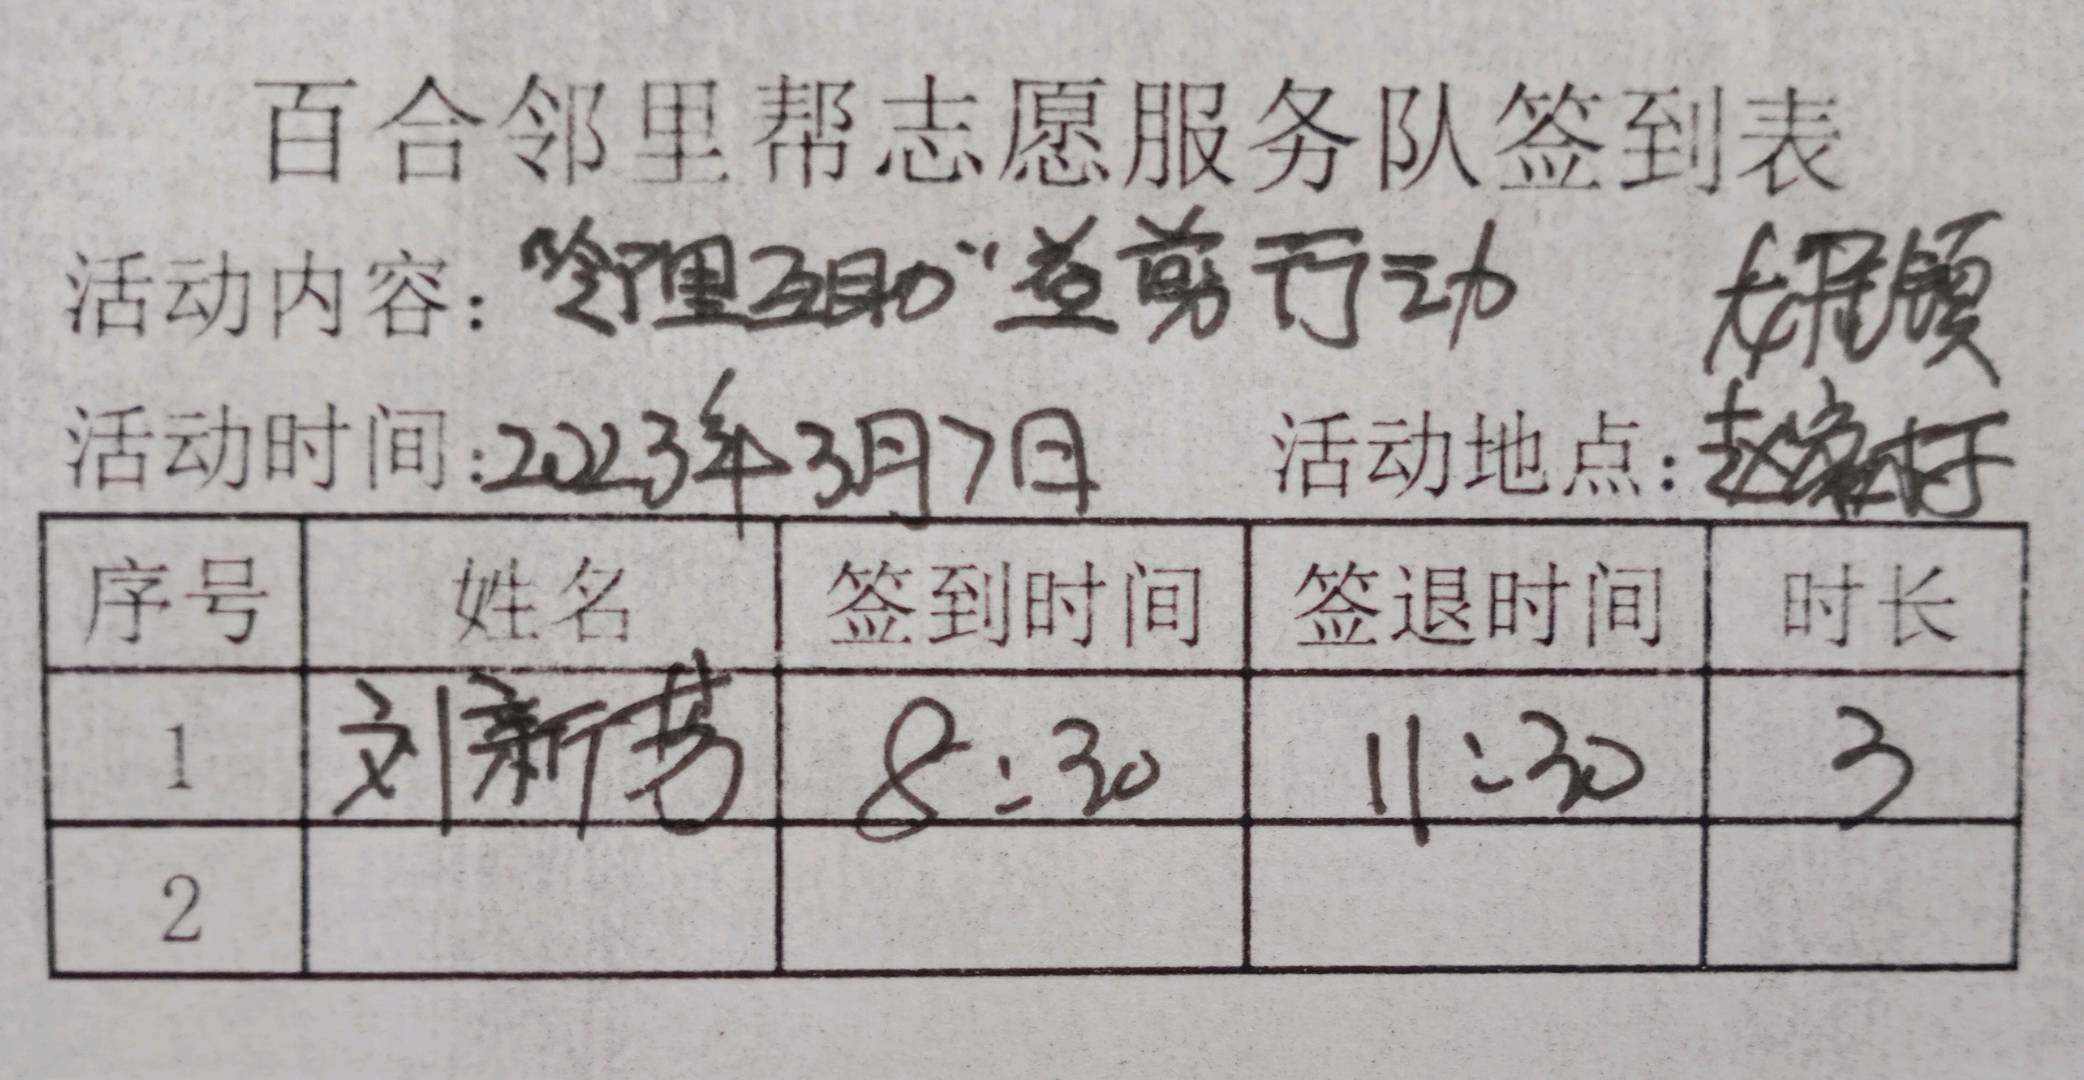 百合邻里帮志愿服务队签到表
活动内容：“邻里互助”益剪行动
活动时间：2023年3月7日 活动地点：赵家村
序号 姓名 签到时间 签退时间 时长
1 刘新芳 8:30 11:30 3
2